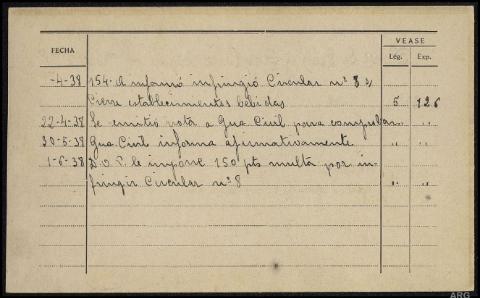 FECHA
VEASE
Lég.
Exp.
-4-38 154- A informó infringió Circular nº 8 s/
Cierre establecimientos bebidas 5 126
22-4-38 Se emitió nota a Gua Civil para comprobar " "
30-5-38 Gua Civil informa afirmativamente " "
1-6-38 D.O.P. le impone 150 pts multa por in-
fringir Circular nº 8 " "
ARG